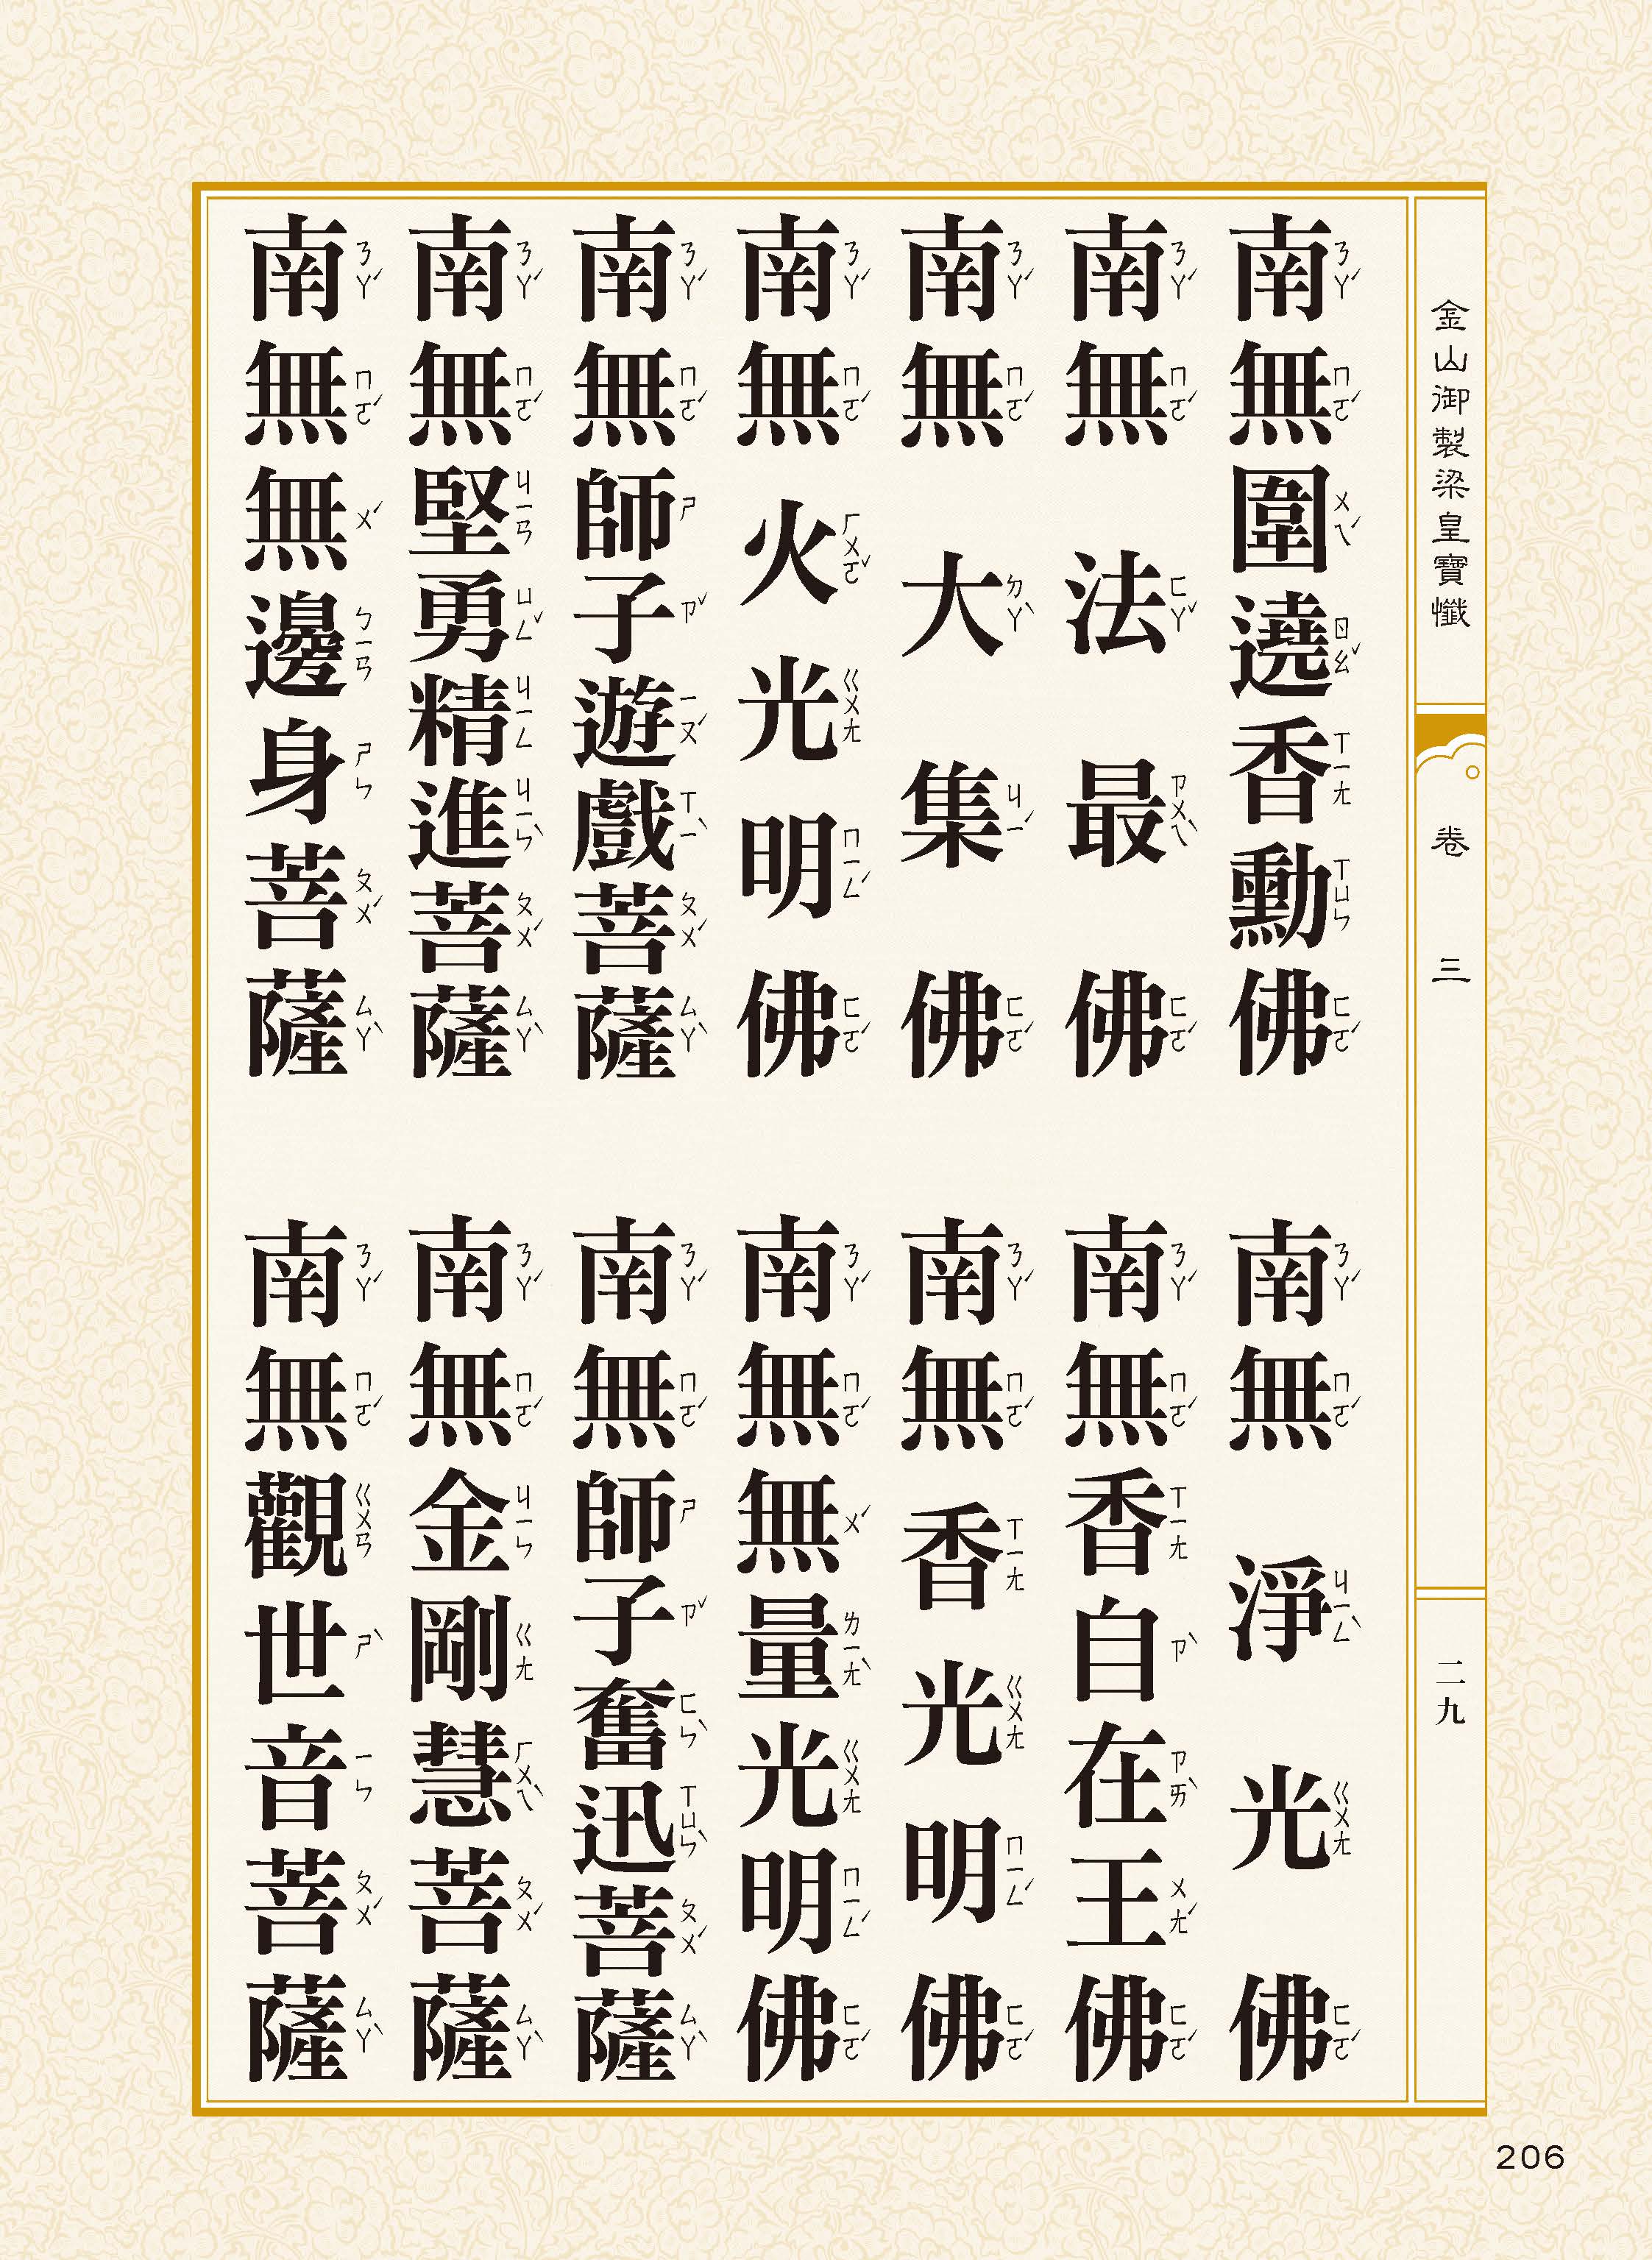 金山御製梁皇寶懺 卷三 二九
南無圍遶香勳佛 南無淨光佛
南無法最佛 南無香自在王佛
南無大集佛 南無香光明佛
南無火光明佛 南無無量光明佛
南無師子遊戲菩薩 南無師子奮迅菩薩
南無堅勇精進菩薩 南無金剛慧菩薩
南無無邊身菩薩 南無觀世音菩薩
206